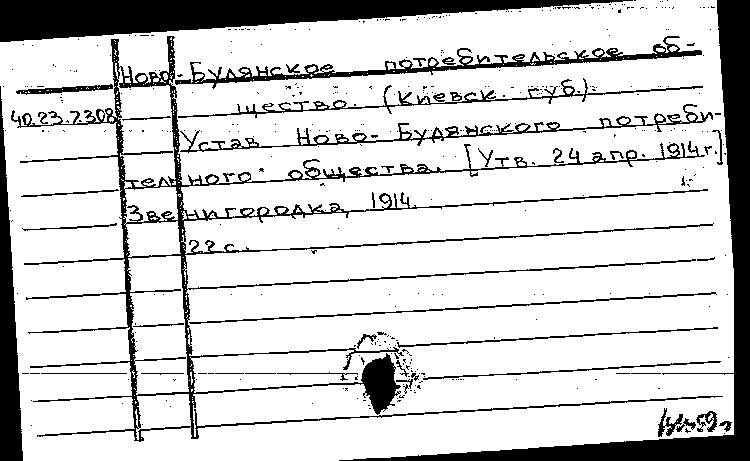 Ново-Будянское потребительское об-
щество. (Киевск. губ.).
40.23.2308
Устав Ново-Будянского потреби-
тельного общества. [Утв. 24 апр. 1914 г.]
Звенигородка, 1914.
22 с.